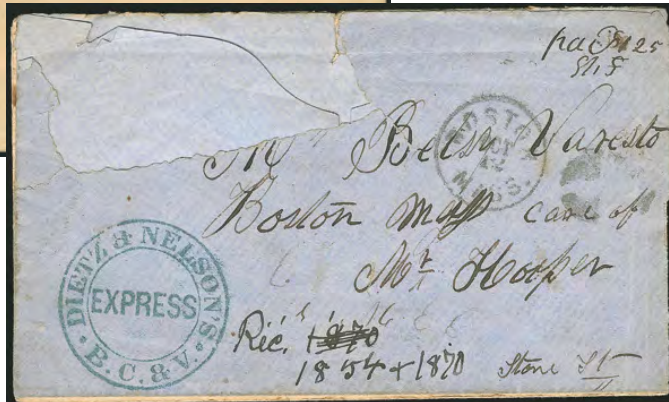 paid 125
BOSTON
OCT
12
MASS.
Betsy Varesto
Boston Mass care of
Mr Hooper
DIETZ & NELSON'S
EXPRESS
B.C. & V.
Rec. 1870
1854 + 1870
Stone St